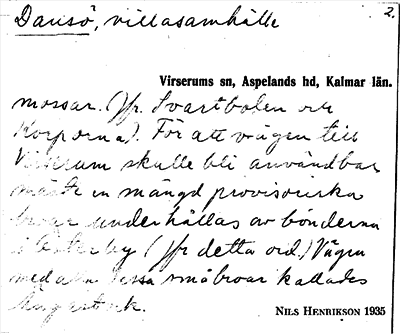 Dansö, villasamhälle
2.
Virserums sn, Aspelands hd, Kalmar län.
mossar. (Jfr. Svartbolen och
Korporna). För att vägen till
Virserum skulle bli användbar
måste en mängd provisoriska
broar underhållas av bönderna
i Österby (jfr detta ord.) Vägen
med alla dessa småbroar kallades
NILS HENRIKSON 1935